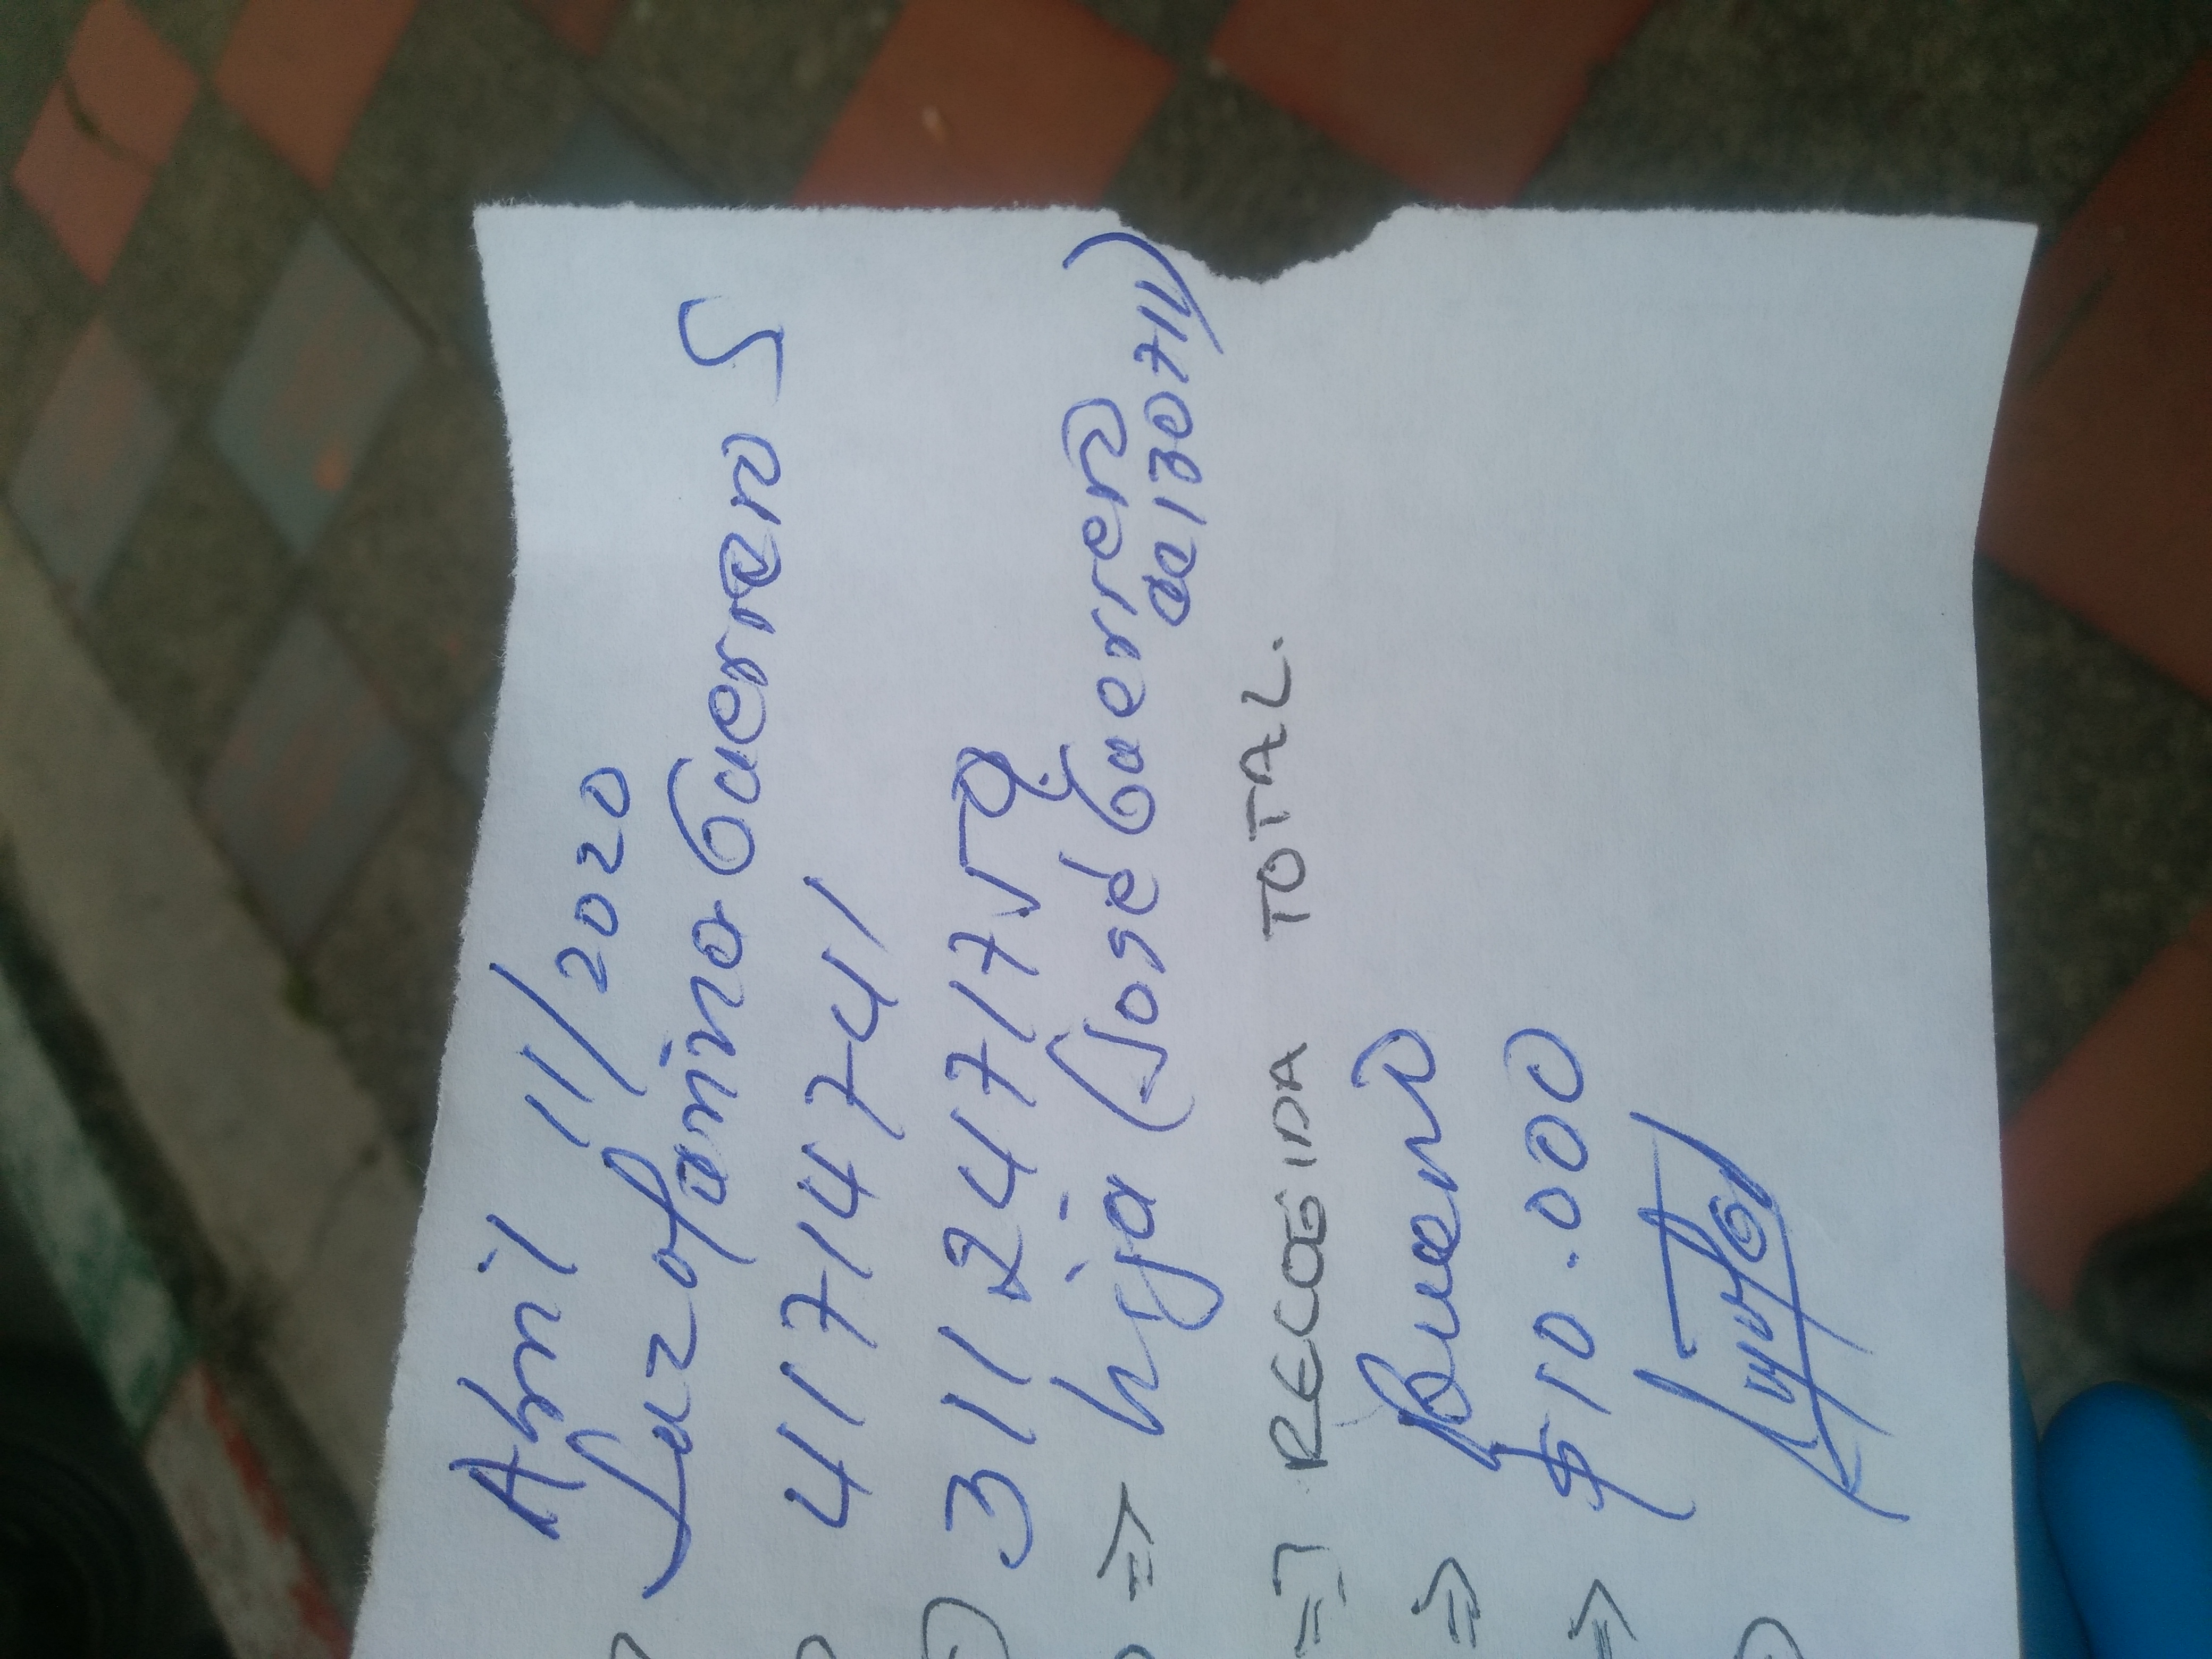 Abril 11/2020
Luz Marina Guerrero S
41714741
311 2471752
⇒ hija (José Guerrero
2130711)
⇒ RECOGIDA TOTAL.
⇒ Buena
⇒ $10.000